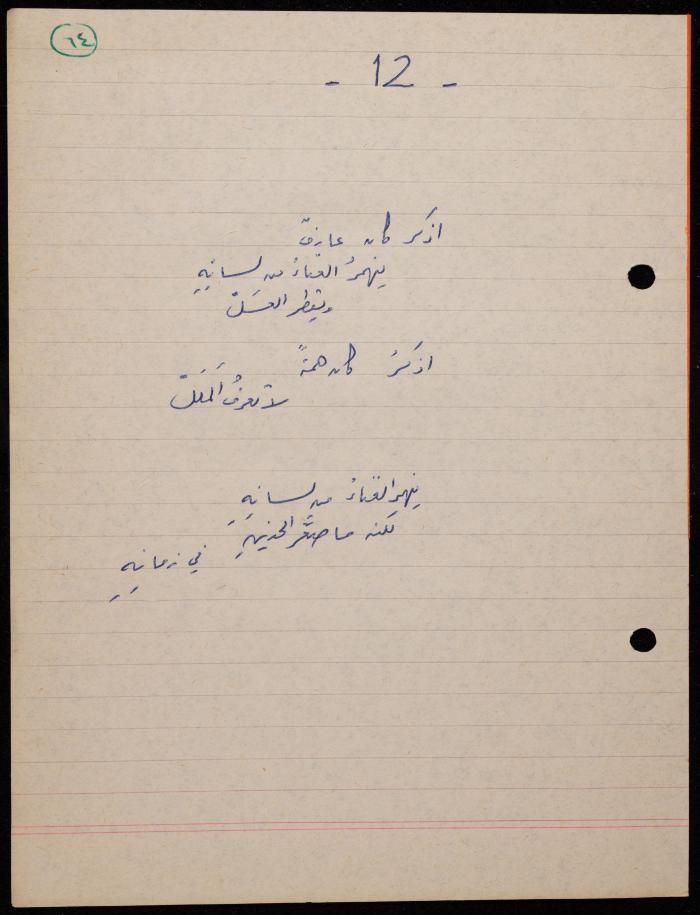 ٦٤
- 12 -
اذكر كان عازفٌ
ينهمرُ الغناءُ من لسانِهِ
ويقطر العسَلْ
اذكرُ كان همةً
لا تعرفُ المَلَلْ
ينهمر الغناءُ من لسانِهِ
لكنه ما صعَّر الجبينَ في زمانِهِ